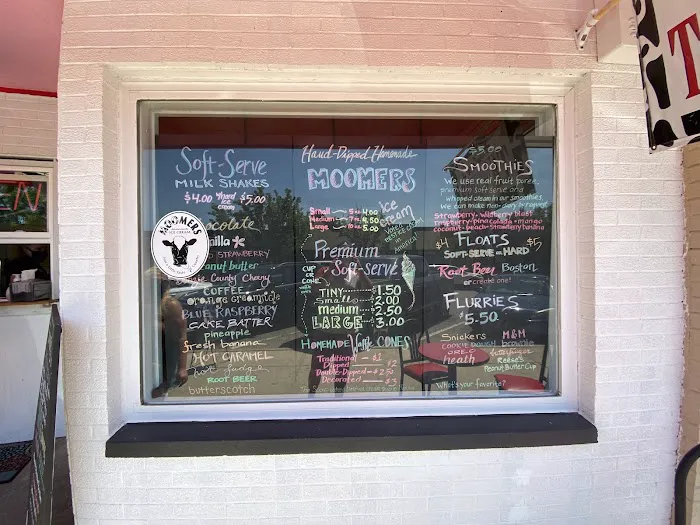 Soft-Serve
MILK SHAKES
$4.00 *hard serve $5.00
MOOMERS
ICE CREAM
STRAWBERRY
peanut butter
County Cherry
COFFEE
orange creamsicle
BLUE RASPBERRY
CAKE BATTER
pineapple
fresh banana
HOT CARAMEL
hot fudge
ROOT BEER
butterscotch
Hand-Dipped Homemade
MOOMERS
ice cream
Small 4.00
Medium 4.50
Large 5.00
Premium
Soft-serve
CUP OR CONE
TINY $1.50
Small 2.00
medium 2.50
LARGE 3.00
HOMEMADE Waffle CONES
Traditional $1
Dipped
Double-Dipped
Decorated
$5.00
SMOOTHIES
We use real fruit puree,
premium soft-serve and
whipped cream in our smoothies.
We can make non-dairy by request
Strawberry - wildberry blast
raspberry - pina colada - mango
coconut - peach - strawberry banana
$4 FLOATS $5
SOFT-SERVE or HARD
Root Beer Boston
or create one!
FLURRIES
$5.50
Snickers M&M
COOKIE DOUGH brownie
OREO Butterfinger
heath Reese's
Peanut Butter Cup
What's your favorite?
T